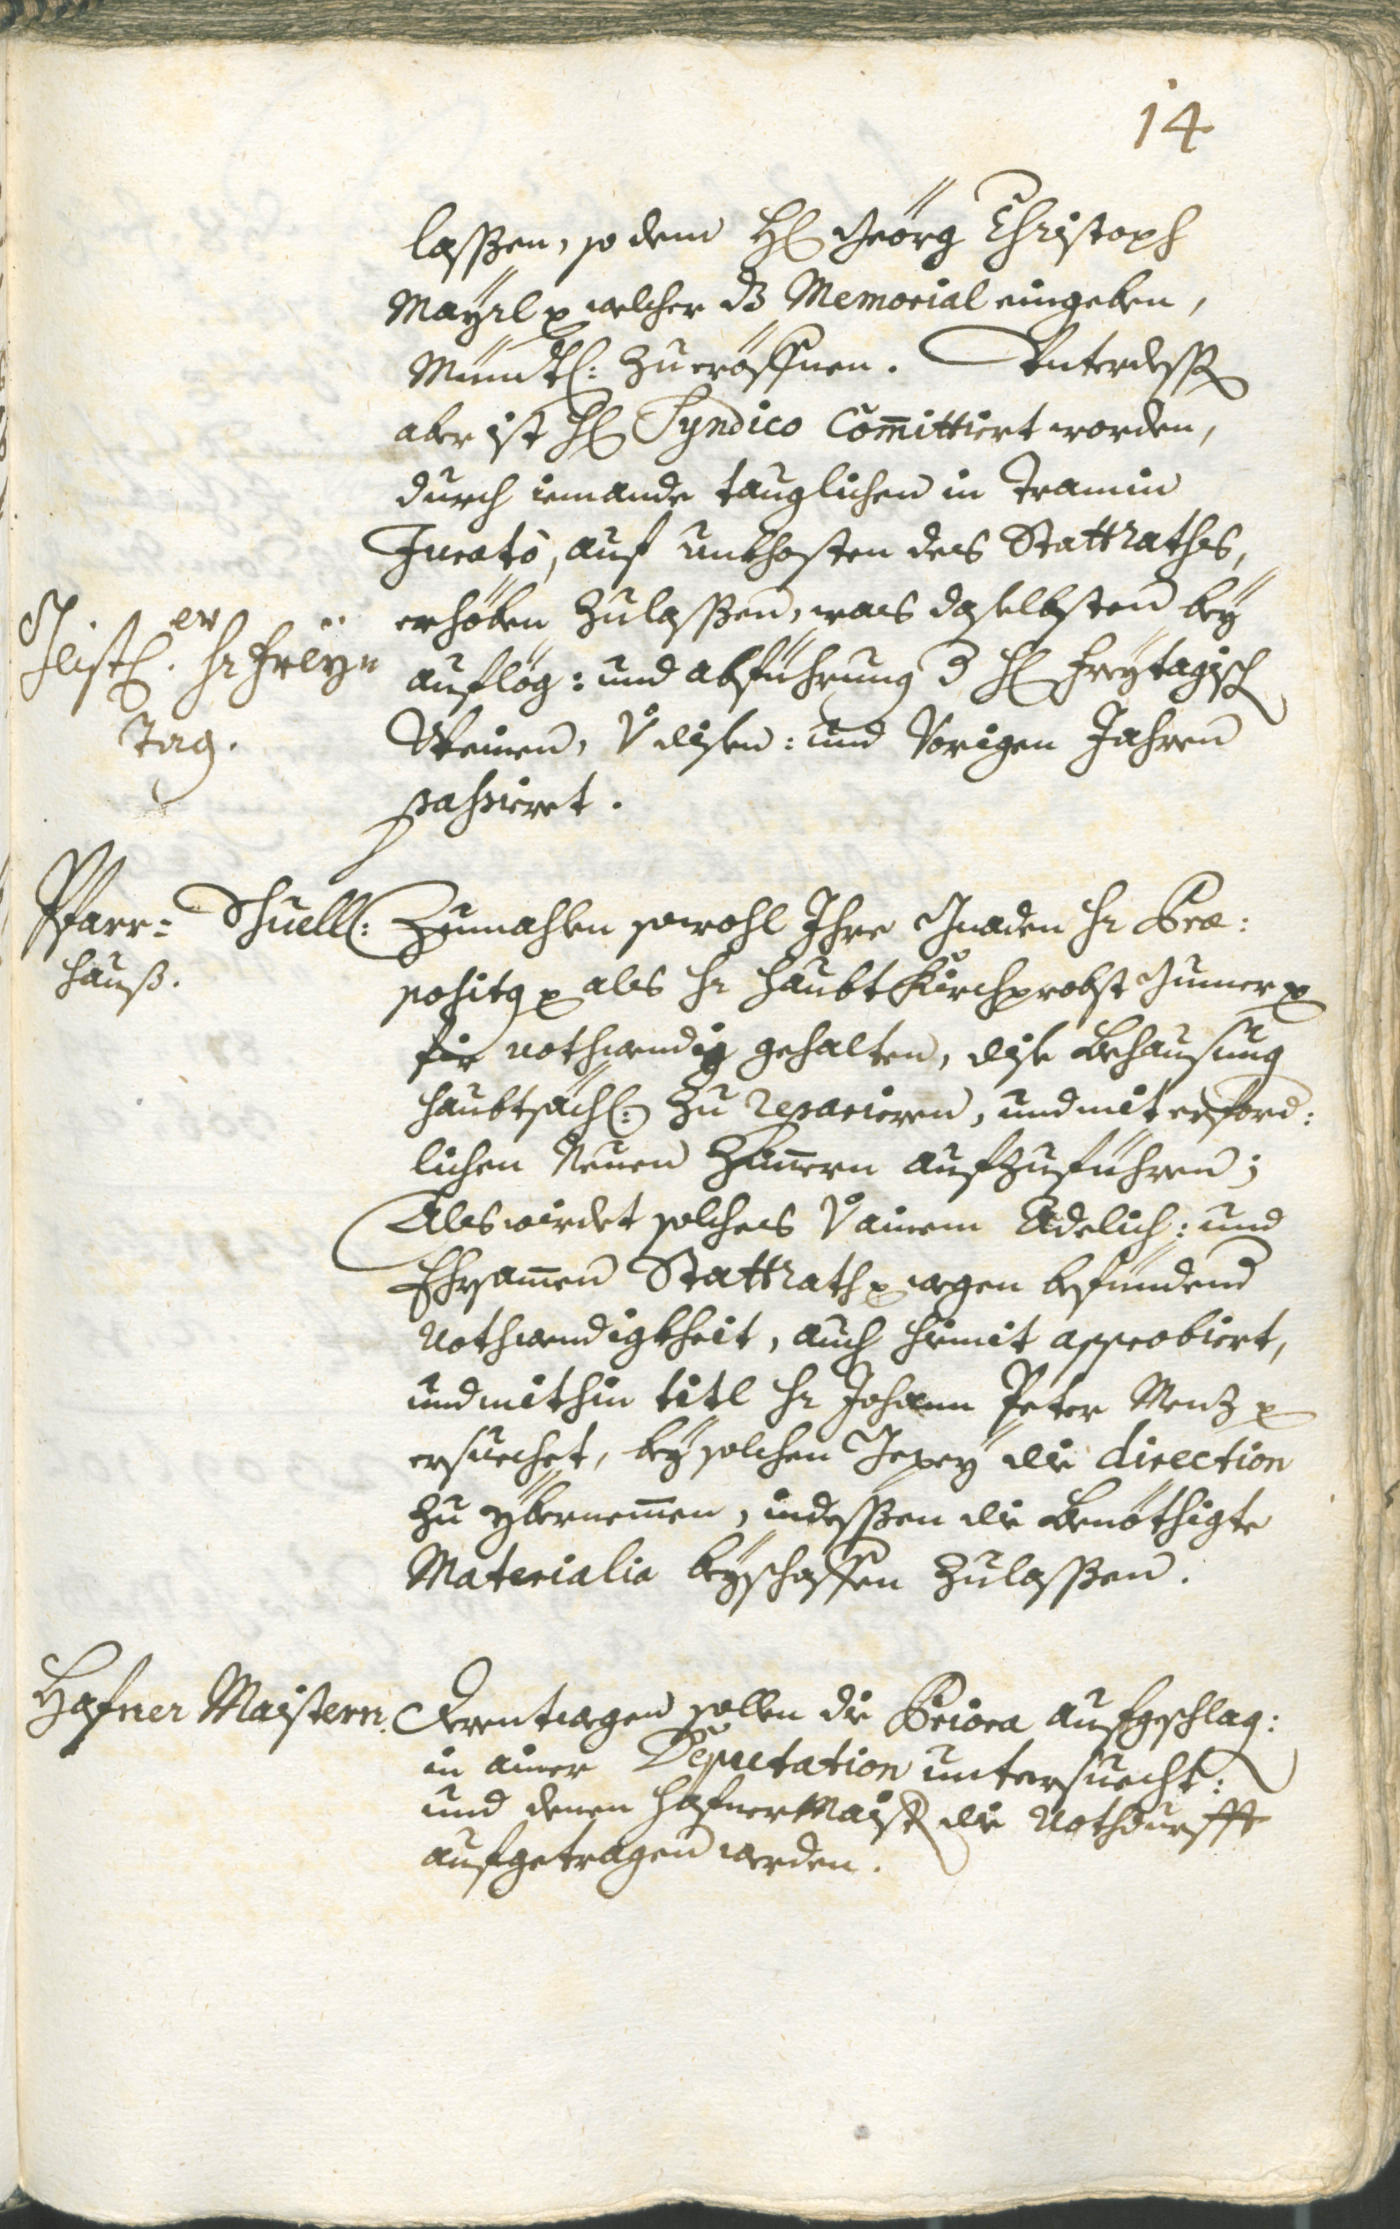 14
laßen, so dem H Geörg Christoph
Mayrl welcher dz Memorial eingeben,
Mündtl: zu eröffnen. Unterdeß
aber ist H Syndico Com̄ittiert worden,
durch iemande tauglichen in Tramin
Juratò, auf unkhosten des Stattrathes,
erhöben zulaßen, was daselbsten bey
aufleg: und abführung d H Freytagisch
Weinen, V disen: und Vorigen Jahren
passieret.
Geistl. er Hr Frey=
Tag.
Pfarr= Schuell:
hauß.
Zumahlen sowohl Ihre Gnaden Hr Præ:
positg als Hr haubt Kürchprobst Gumer
für nothwendig gehalten, dise Behausung
haubtsächl: zu reparieren, und mit erford:
lichen Neuen Zim̄ern aufzuführen;
Als wirdet solches V ainem Adelich: und
Ehrsam̄en Stattrath wegen befundend
Nothwendigkheit, auch hiemit approbiert,
und mithin titl Hr Johann Peter Menz
ersuechet, bey solchen Gepey die direction
zu ybernem̄en, indeßen die Benöthigte
Materialia beyschaffen zulaßen.
Hafner Maistern.
Derentwegen sollen die Priora aufgeschlag:
in ainer Deputation untersuecht:
und denen Hafner Maist die Nothdurfft
aufgetragen werden.